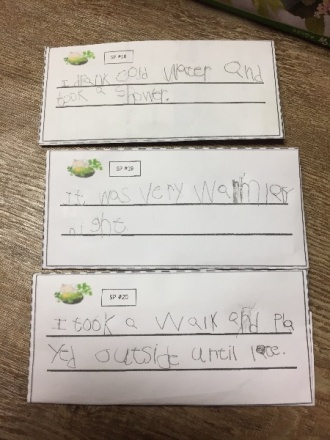 SP #18
I drank cold water and
took a shower.
SP #19
It was very warm last
night
SP #20
I took a walk and pla
yed outside until late.